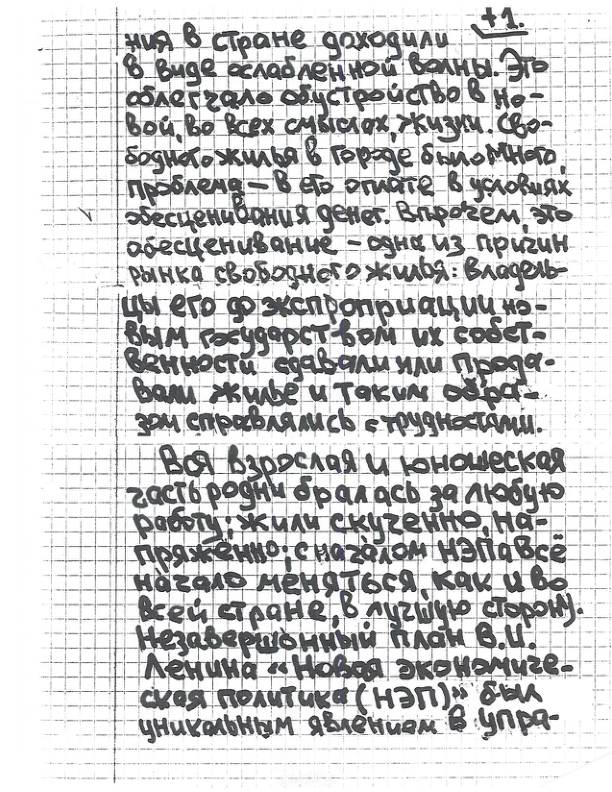 71.
ния в стране доходили
в виде ослабленной волны. Это
облегчало обустройство в но-
вой, во всех смыслах, жизни. Сво-
бодного жилья в городе было много,
проблема – в его оплате в условиях
обесценивания денег. Впрочем, это
обесценивание – одна из причин
рынка свободного жилья: владель-
цы его до экспроприации но-
вым государством их собст-
венности сдавали или прода-
вали жильё и таким обра-
зом справлялись с трудностями.
Вся взрослая и юношеская
часть родни бралась за любую
работу; жили скученно, на-
пряжённо; с началом НЭПа всё
начало меняться, как и во
всей стране, в лучшую сторону.
Незавершонный план В.И.
Ленина «Новая экономиче-
ская политика (НЭП)» был
уникальным явлением в упра-